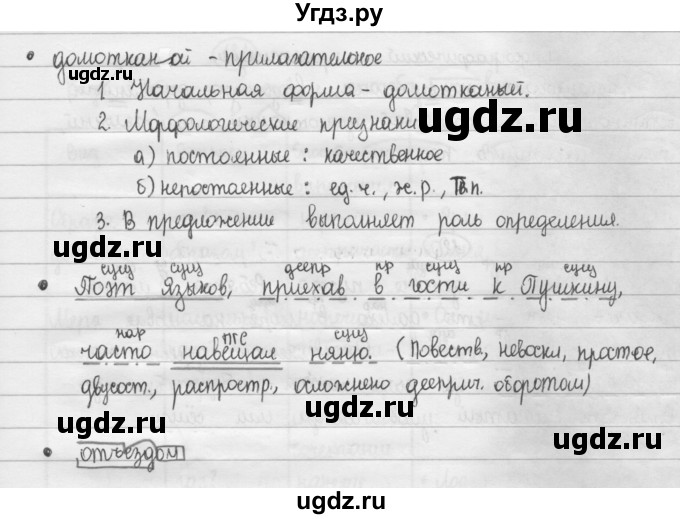 Угдз.ру
• домотканой - прилагательное
1. Начальная форма - домотканый.
2. Морфологические признаки
а) постоянные : качественное
б) непостаенные : ед. ч., ж. р., Тв.п.
3. В предложении выполняет роль определения.
сущ сущ деепр пр сущ пр сущ
• Поэт Языков, приехав в гости к Пушкину,
нар пгс сущ
часто навещал няню. (Повеств, невоскл, простое,
двусост., распростр., осложнено дееприч. оборотом)
• отъездом
ugdz.ru
ugdz.ru
ugdz.ru
ugdz.ru
ugdz.ru
ugdz.ru
ugdz.ru
ugdz.ru
ugdz.ru